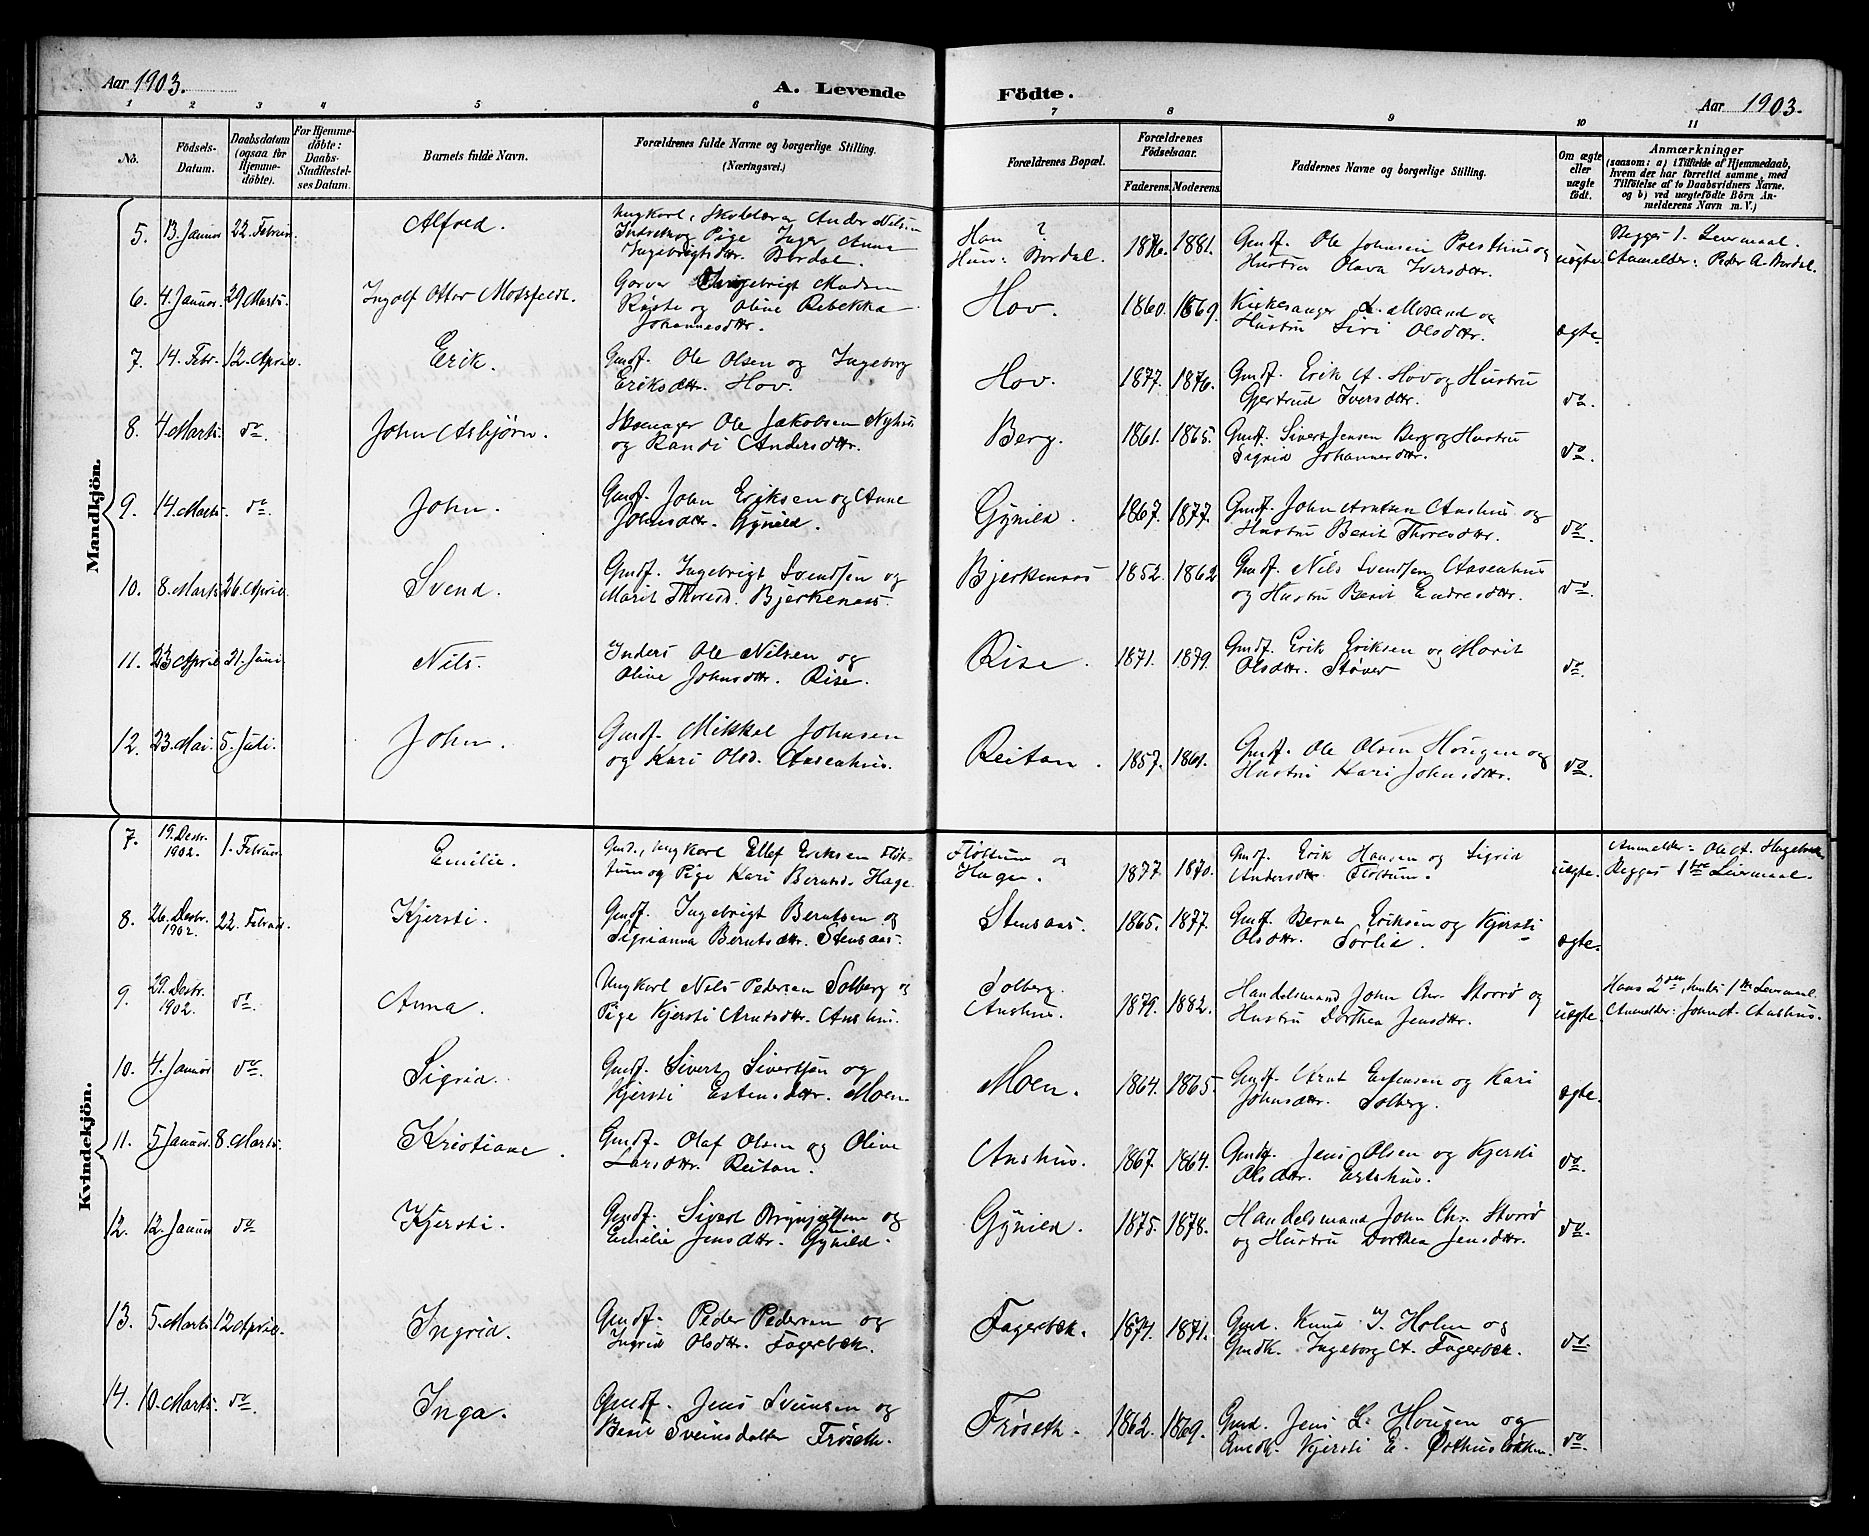 Aar 1903.
A. Levende Födte.
Aar 1903.
1 2 3 4 5 6 7 8 9 10 11
No.
Födsels-Datum.
Daabsdatum (ogsaa for Hjemmedøbte).
For Hjemmedøbte: Daabs-Stadfæstelses Datum.
Barnets fulde Navn.
Forældrenes fulde Navne og borgerlige Stilling.
(Næringsvei.)
Forældrenes Bopæl.
Forældrenes Fødselsaar.
Faderens. Moderens.
Faddernes Navne og borgerlige Stilling.
Om ægte eller uægte født.
Anmærkninger
(saasom: a) i Tilfælde af Hjemmedaab, hvem der har forrettet samme, med Tilføielse af to Daabsvidners Navne, og b) ved uægtefödte Börn Anmelderens Navn m. V.)
Mandkjön.
5. 13. Januar 22. Februar. Alfred. Ungkarl, Skolelærer Ander Nilsen
Indset og Pige Inger Anna
Ingebrigtsdttr. Bordal.
Han ?
Hun: Bordal. 1876. 1881. Gmdf. Ole Johnsen Presthus og
Hustru Olava Iversdttr. uægte. Begges 1. Leiermaal.
Anmelder: Peder A. Bordal.
6. 4. Januar. 29 Marts. Ingolf Ottar Motzfeldt. Garver Ingebrigt Madsen
Røste og Oline Rebekka
Johannesdttr. Hov. 1860. 1869. Kirkesanger L. Mosand og
Hustru Siri Olsdttr. ægte.
7. 14. Febr. 12. April. Erik. Gmdf. Ole Olsen og Ingeborg
Eriksdttr. Hov. Hov. 1877. 1876. Gmdf. Erik A. Hov og Hustru
Gjertrud Iversdttr. do.
8. 4. Marts. do. John Asbjörn. Skomager Ole Jakobsen Nyhus
og Randi Andersdttr. Berg. 1861. 1865. Gmdf. Sivert Jensen Berg og Hustru
Sigrid Johannesdttr. do.
9. 14. Marts. do. John. Gmdf. John Eriksen og Anne
Johnsdttr. Gynild. Gynild. 1867. 1877. Gmdf. John Arntsen Aushus og
Hustru Berit Thoresdttr. do.
10. 8. Marts 26. April. Svend. Gmdf. Ingebrigt Svendsen og
Marit Thoresd. Bjerkenaas. Bjerkenaas 1852. 1862 Gmdf. Nils Svendsen Aasenhus
og Hustru Berit Endresdttr. do.
11. 23 April 21. Juni. Nils. Inders. Ole Nilsen og
Oline Johnsdttr. Rise. Rise. 1871. 1879. Gmdf. Erik Eriksen og Marit
Olsdttr. Støver do.
12. 23. Mai. 5. Juli. John. Gmdf. Mikkel Johnsen
og Kari Olsd. Aasenhus. Reitan. 1857. 1861. Gmdf. Ole Olsen Hougen og
Hustru Kari Johnsdttr. do.
Kvindekjön.
7. 19. Desbr. 1902. 1. Februar. Emilie. Gmd., Ungkarl Ellef Eriksen Fløt-
tum og Pige Kari Berntsd. Hage. Fløttum og
Hage. 1877. 1870. Gmdf. Erik Hansen og Sigrid
Andersdttr. Fløttum. uægte. Anmelder: Ole A. Hagebak
Begges 1ste Leiermaal.
8. 26. Desbr. 1902. 22. Februar. Kjersti. Gmdf. Ingebrigt Berntsen og
Sigrianna Berntsdttr. Stensaas. Stensaas. 1865. 1877. Gmdf. Bernt Eriksen og Kjersti
Olsdttr. Sørlia. ægte.
9. 29. Desbr. 1902. do. Anna. Ungkarl Nils Pedersen Solberg og
Pige Kjersti Arntsdttr. Aushus. Solberg.
Aushus. 1879. 1882. Handelsmand John Chr. Storrø og
Hustru Dorthea Jensdttr. uægte. Hans 2den, hendes 1ste Leiermaal.
Anmelder: John A. Aushus.
10. 4. Januar do. Sigrid. Gmdf. Sivert Sivertsen og
Kjersti Estensdttr. Moen. Moen. 1864. 1865. Gmdf. Arnt Estensen og Kari
Johnsdttr. Solberg. ægte.
11. 5 Januar. 8. Marts. Kristiane. Gmdf. Olaf Olsen og Oline
Larsdttr. Reitan. Aushus. 1867. 1864. Gmdf. Jens Olsen og Kjersti
Olsdttr. Estshus. do.
12. 12. Januar do Kjersti. Gmdf. Sivert Brynjulfsen og
Emilie Jensdttr. Gynild. Gynild. 1875. 1878. Handelsmand John Chr. Storrø
og Hustru Dorthea Jensdttr. do.
13. 5. Marts 12 April. Ingrid. Gmdf. Peder Pedersen og
Ingrid Olsdttr. Fagerbæk. Fagerbæk. 1874. 1871. Gmd. Knud I. Holm og
Gmdk. Ingeborg A. Fagerbæk. do.
14. 10. Marts. do. Inga. Gmdf. Jens Svensen og
Berit Sveinsdatter Frøseth. Frøseth. 1862. 1869. Gmd. Jens L. Hougen og
Gmdk. Kjersti E. Østhusløkken. do.